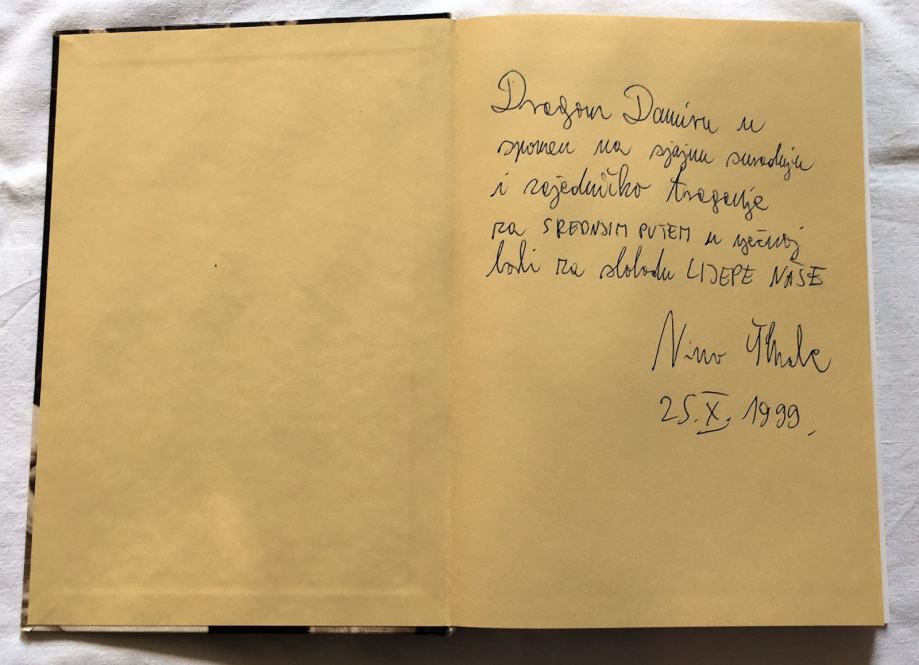 Dragom Damiru u
spomen na sjajnu suradnju
i zajedničko traganje
za SREDNJIM PUTEM u vječnoj
borbi za slobodu LIJEPE NAŠE
Nino
25. X. 1999.